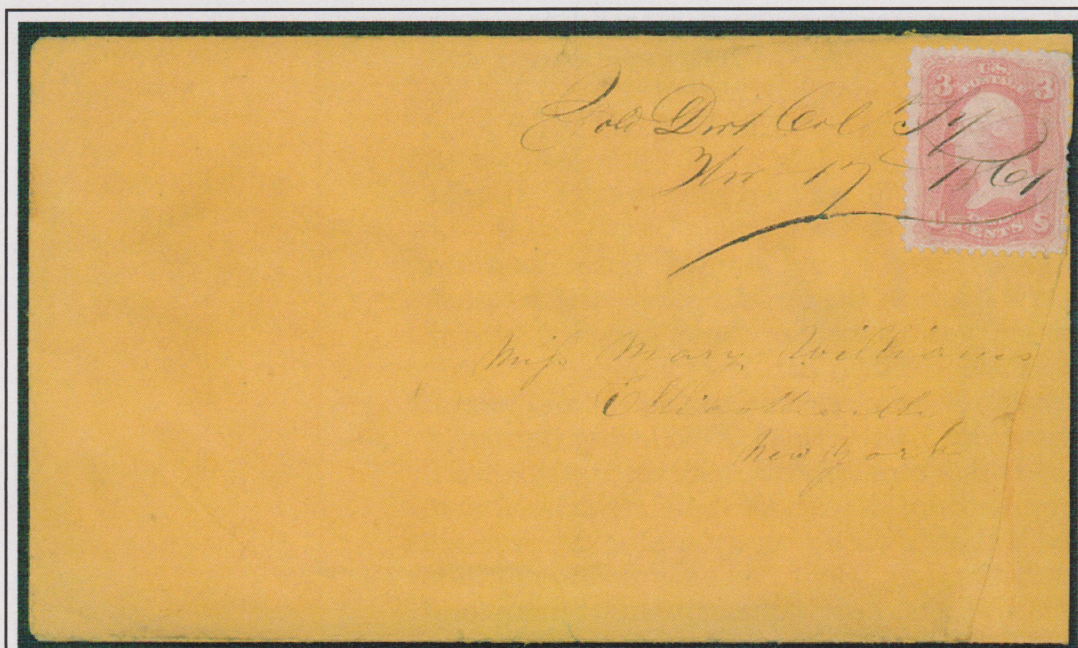 Gold Dirt Col T/y
Nov 17 1861
3 U.S. POSTAGE 3
U THREE CENTS S
Miss Mary Williams
Ellicottville
New York